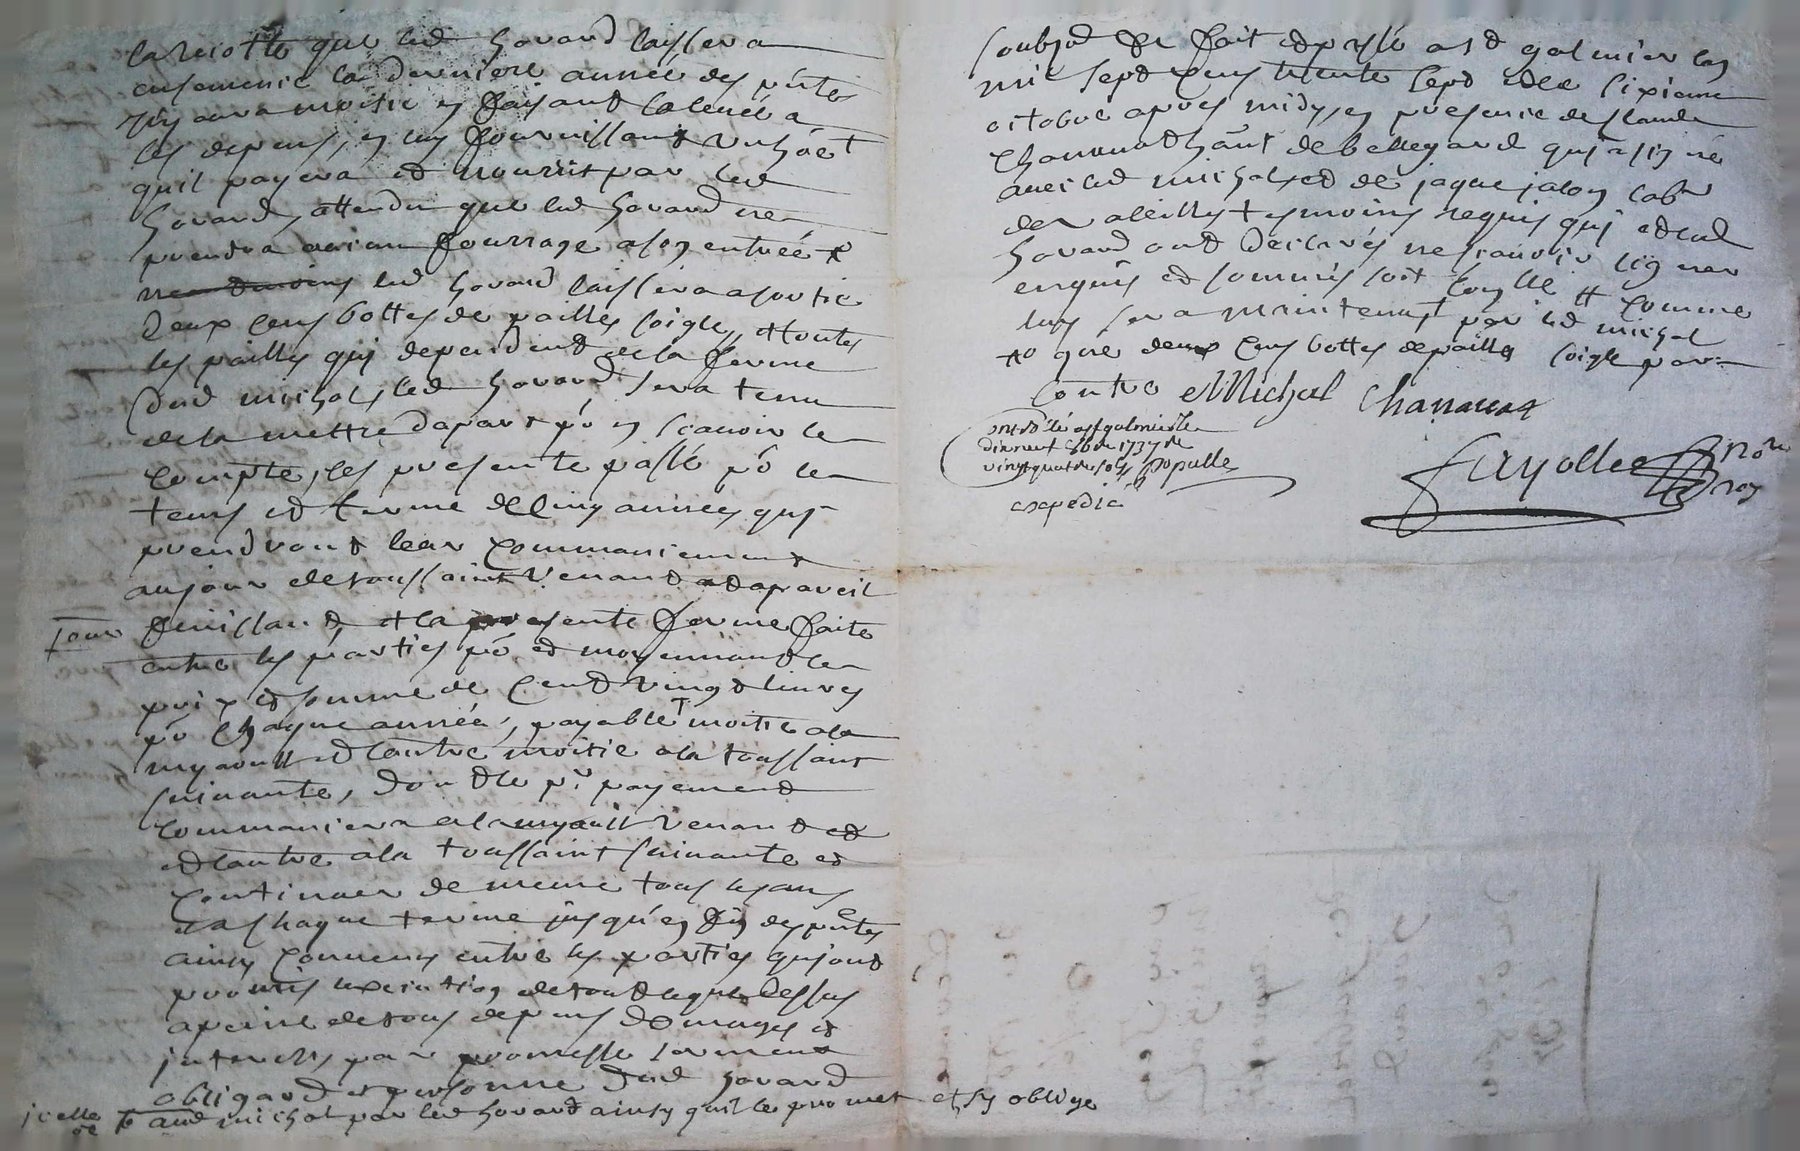 la recolte que led hovard laissera
ensemencé la derniere année des pntes
il y aura moitie en faisant la levée a
les depens, en luy fournissant un
quil payera et nourrit par led
hovard, attendu que led hovard ne
prendra aucun fourrage a son entrée
led hovard laissera a sortie
deux cens bottes de pailles soigle, et toutes
les pailles qui dependent de la ferme
dud michol, led hovard sera tenu
de la mettre dapart po en scavoir le
compte, les presente passé po le
tems et terme de cinq années quy
prendront leur commancement
au jour de toussaint venant et apareil
jour finissant, et la presente ferme faite
entre les parties po et moyennant le
prix et somme de cent vingt livres
po chaque année, payable moitie a la
myaoust et lautre moitie a la toussaint
suivante, dont le pr payement
commancera a la myaoust venant et
et lautre a la toussaint suivante et
continuer de meme tous les ans
a chaque terme jusqu'en fin des pntes
ainsy convenu entre les parties qui ont
promis lexecution de tout ce que dessus
a peine de tous depens domages et
interests par promesse serment
obligaon et personne dud hovard
icelle aud michol par led hovard ainsy quil le promet et sy oblige
soubzon et fait et passé a st galmier lan
mil sept cens trente sept et le sixieme
octobre apres midy, en presence de sr claude
chanavat hant de bellegarde qui a signé
avec led michol, et de jaque jalon labr
de temoins requis qui et led
hovard ont declarés ne scavoir signer
enquis et sommés soit comme
luy sera maintenu par led michol
que deux cens bottes de pailles soigle par
contre Michol Chanavat
ontrôlé a st galmier le
dixneuf 8bre 1737 Re
vingt quatre sols populle
expedié
fayolle nore
roy